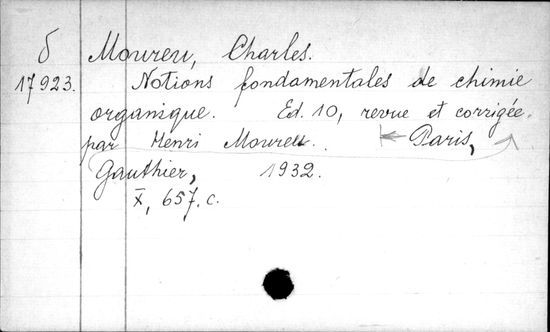 δ Moureu, Charles.
17923. Notions fondamentales de chimie
organique. Ed. 10, revue et corrigée.
par Henri Moureu. Paris,
Gauthier, 1932.
X, 657. c.